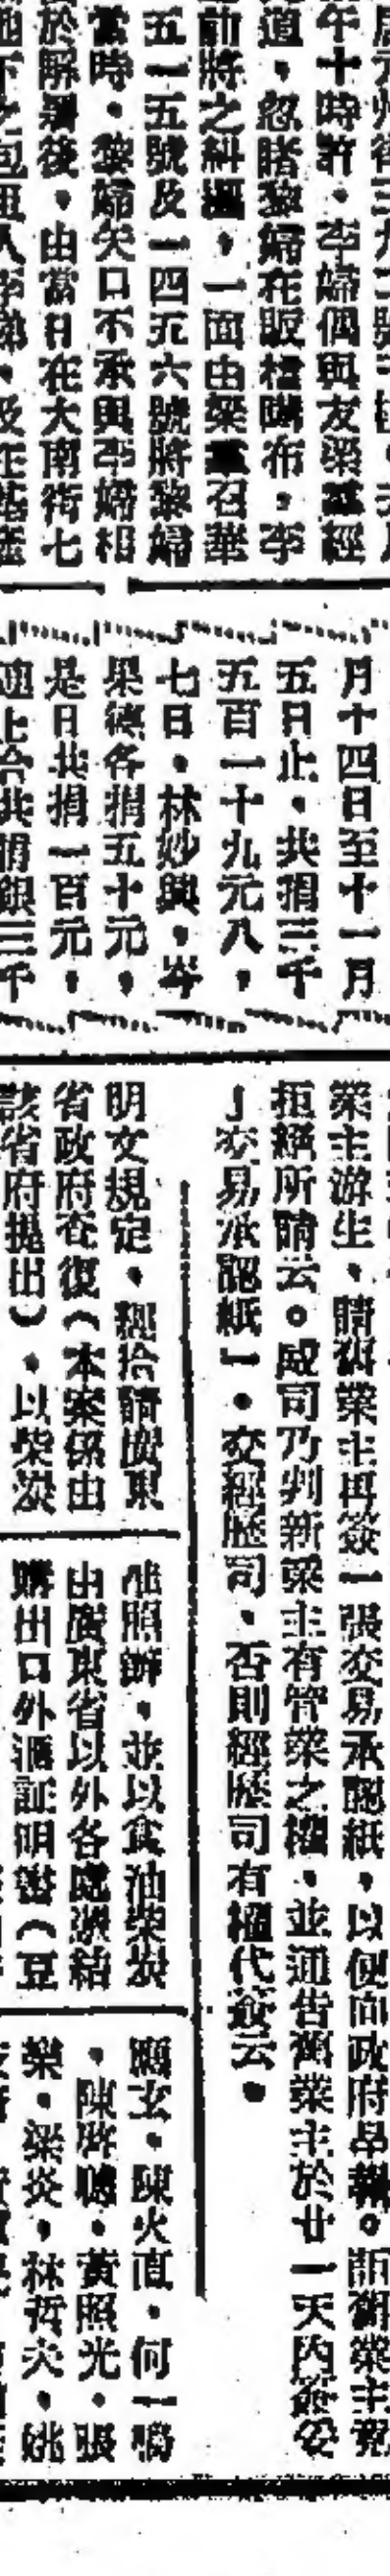 午十時許。李婦偶與友梁蕙經
道,忽睹黎婦在販檔購布,李
前將之糾纏,一面由梁蕙召華
五一五號及一四五六號將黎婦
當時。黎婦矢口不承與李婦相
於解署後,由當日在大南街七
月十四日至十一月
五日止,共捐三千
五百一十九元八,
七日,林妙興,岑
果德各捐五十元,
是日共捐一百元,
連上合共捐銀三千
業主游生,請舊業主再簽一張交易承認紙,以便向政府呈報。詎舊業主竟
拒絕所請云。威司乃判新業主有管業之權,並通告舊業主於廿一天內簽妥
「交易承認紙」。交經歷司,否則經歷司有權代簽云。
明文規定,經拾請廣東
省政府查復(本案係由
該省府提出),以柴炭
准照辦,並以食油柴炭
由廣東省以外各處漵結
購出口外滙証明書(豆
應玄。陳火直。何一鶚
,陳啓聰。黃照光。張
樂。梁炎,林哲夫,姚